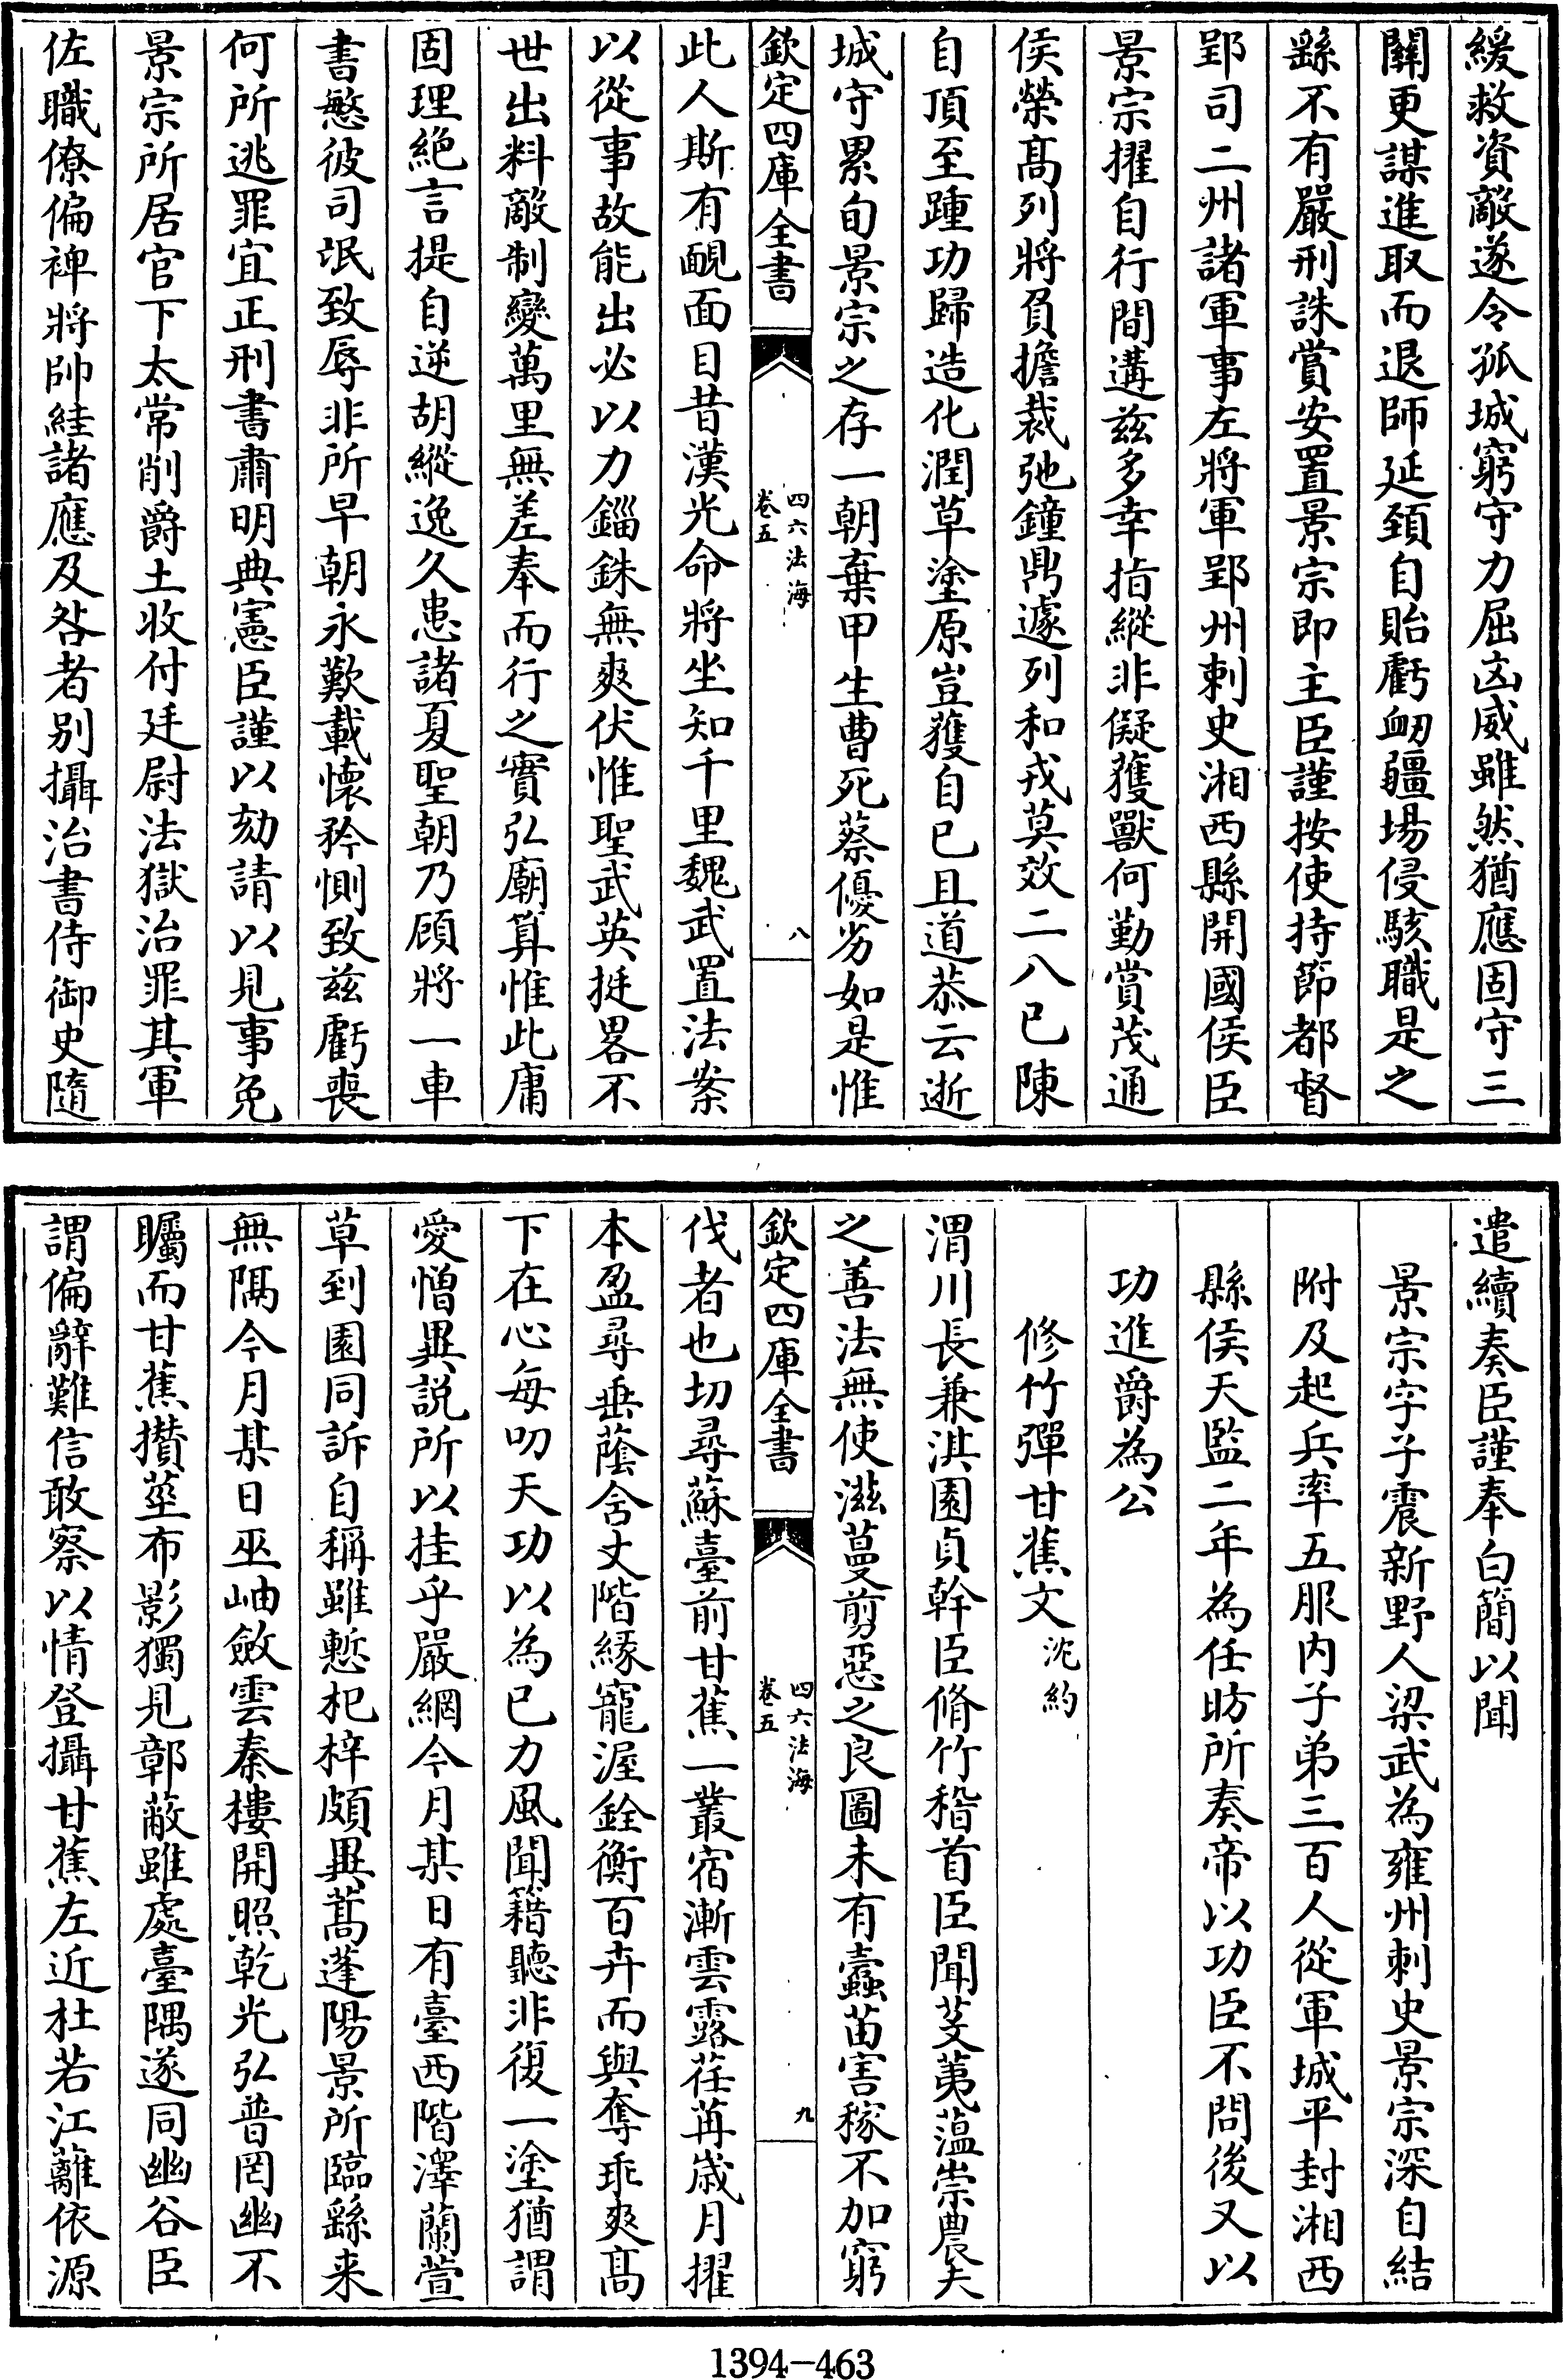 緩救資敵遂令孤城窮守力屈凶威雖然猶應固守三
關更謀進取而退師延頸自貽虧衂疆場侵駭職是之
繇不有嚴刑誅賞安置景宗即主臣謹按使持節都督
郢司二州諸軍事左將軍郢州刺史湘西縣開國侯臣
景宗擢自行間遘兹多幸指縱非儗獲獸何勤賞茂通
侯榮髙列將負擔裁弛鐘鼎遽列和戎莫效二八已陳
自頂至踵功歸造化潤草塗原豈獲自已且道恭云逝
城守累旬景宗之存一朝棄甲生曹死蔡優劣如是惟
欽定四庫全書
四六法海
卷五
八
此人斯有靦面目昔漢光命將坐知千里魏武置法案
以從事故能出必以力錙銖無爽伏惟聖武英挺畧不
世出料敵制變萬里無差奉而行之實弘廟算惟此庸
固理絶言提自逆胡縱逸久患諸夏聖朝乃顧將一車
書愍彼司氓致辱非所早朝永歎載懷矜惻致兹虧喪
何所逃罪宜正刑書肅明典憲臣謹以劾請以見事免
景宗所居官下太常削爵土收付廷尉法獄治罪其軍
佐職僚偏裨將帥絓諸應及咎者别攝治書侍御史隨
遣續奏臣謹奉白簡以聞
景宗字子震新野人梁武為雍州刺史景宗深自結
附及起兵率五服内子弟三百人從軍城平封湘西
縣侯天監二年為任昉所奏帝以功臣不問後又以
功進爵為公
修竹彈甘蕉文沈約
渭川長兼淇園貞幹臣脩竹稽首臣聞芟荑藴崇農夫
之善法無使滋蔓剪惡之良圖未有蠹苗害稼不加窮
欽定四庫全書
四六法海
卷五
九
伐者也切尋蘇臺前甘蕉一叢宿漸雲露荏苒歲月擢
本盈尋垂蔭含丈階緣寵渥銓衡百卉而與奪乖爽髙
下在心每叨天功以為已力風聞籍聽非復一塗猶謂
愛憎異説所以挂乎嚴網今月某日有臺西階澤蘭萱
草到園同訴自稱雖慙杞梓頗異蒿蓬陽景所臨繇来
無隅今月某日巫岫斂雲秦樓開照乾光弘普罔幽不
矚而甘蕉攢莖布影獨見鄣蔽雖處臺隅遂同幽谷臣
謂偏辭難信敢察以情登攝甘蕉左近杜若江蘺依源
1394-463